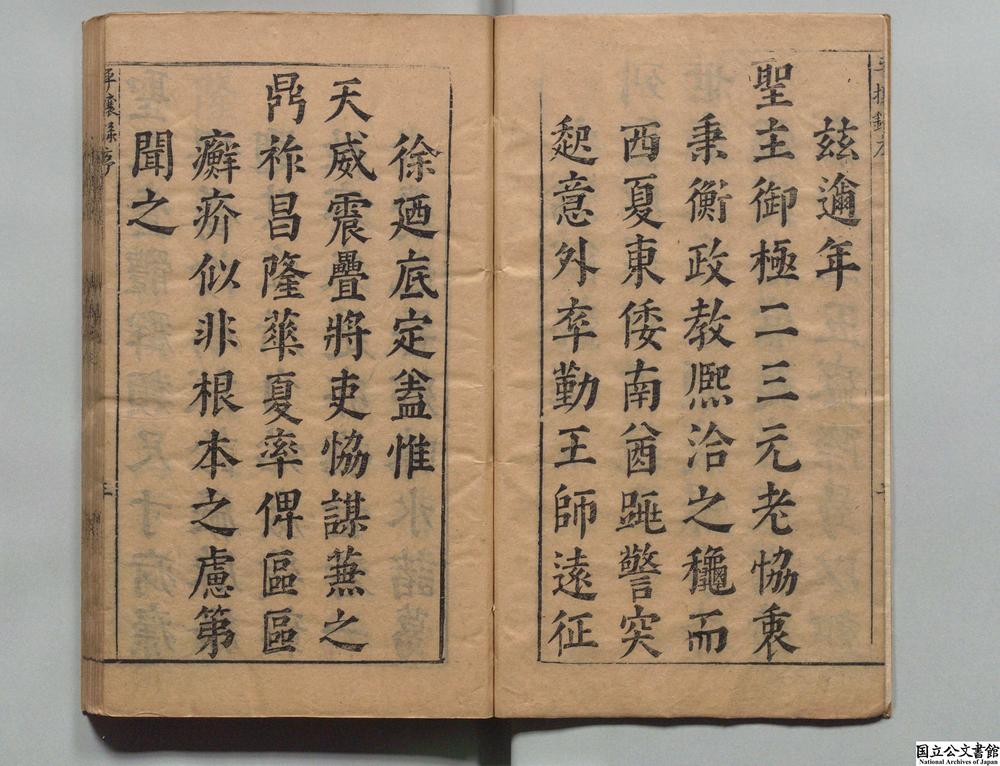 茲邇年
聖主御極二三元老恊衷
秉衡政教熈洽之穐而
西夏東倭南酋踵警突
趂意外卒勤王師逺征
徐廼底定葢惟
天威震疊將吏恊謀蕪之
鼎祚昌隆華夏率俾區區
癬疥似非根本之慮第
聞之
平壤録序
国立公文書館
National Archives of Japan